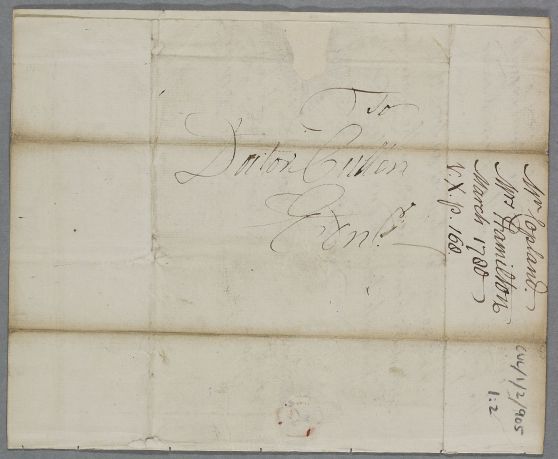 To
Doctor Cullen
Edinbr.
Mr Copland
Mrs Hamilton
March 1780
V. X. p. 168.
CUL/1/2/905
1:2